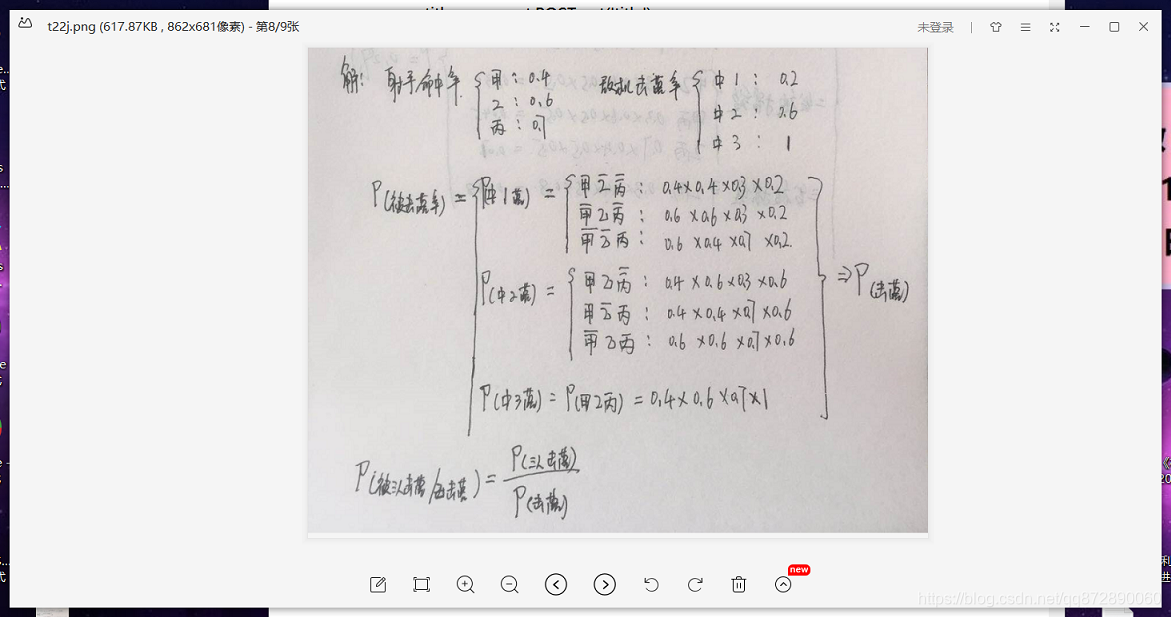 t22j.png (617.87KB , 862x681像素) - 第8/9张
未登录
解: 射手命中率 甲: 0.4
乙: 0.6
丙: 0.7
敌机击落率 中1: 0.2
中2: 0.6
中3: 1
P(被击落率) = P(中1落) = 甲乙̅丙̅: 0.4×0.4×0.3×0.2
甲̅乙丙̅: 0.6×0.6×0.3×0.2
甲̅乙̅丙: 0.6×0.4×0.7×0.2
P(中2落) = 甲乙丙̅: 0.4×0.6×0.3×0.6
甲乙̅丙: 0.4×0.4×0.7×0.6
甲̅乙丙: 0.6×0.6×0.7×0.6
⇒P(击落)
P(中3落) = P(甲乙丙) = 0.4×0.6×0.7×1
P(被三人击落/击落) = P(三人击落)
P(击落)
new
https://blog.csdn.net/qq872890060